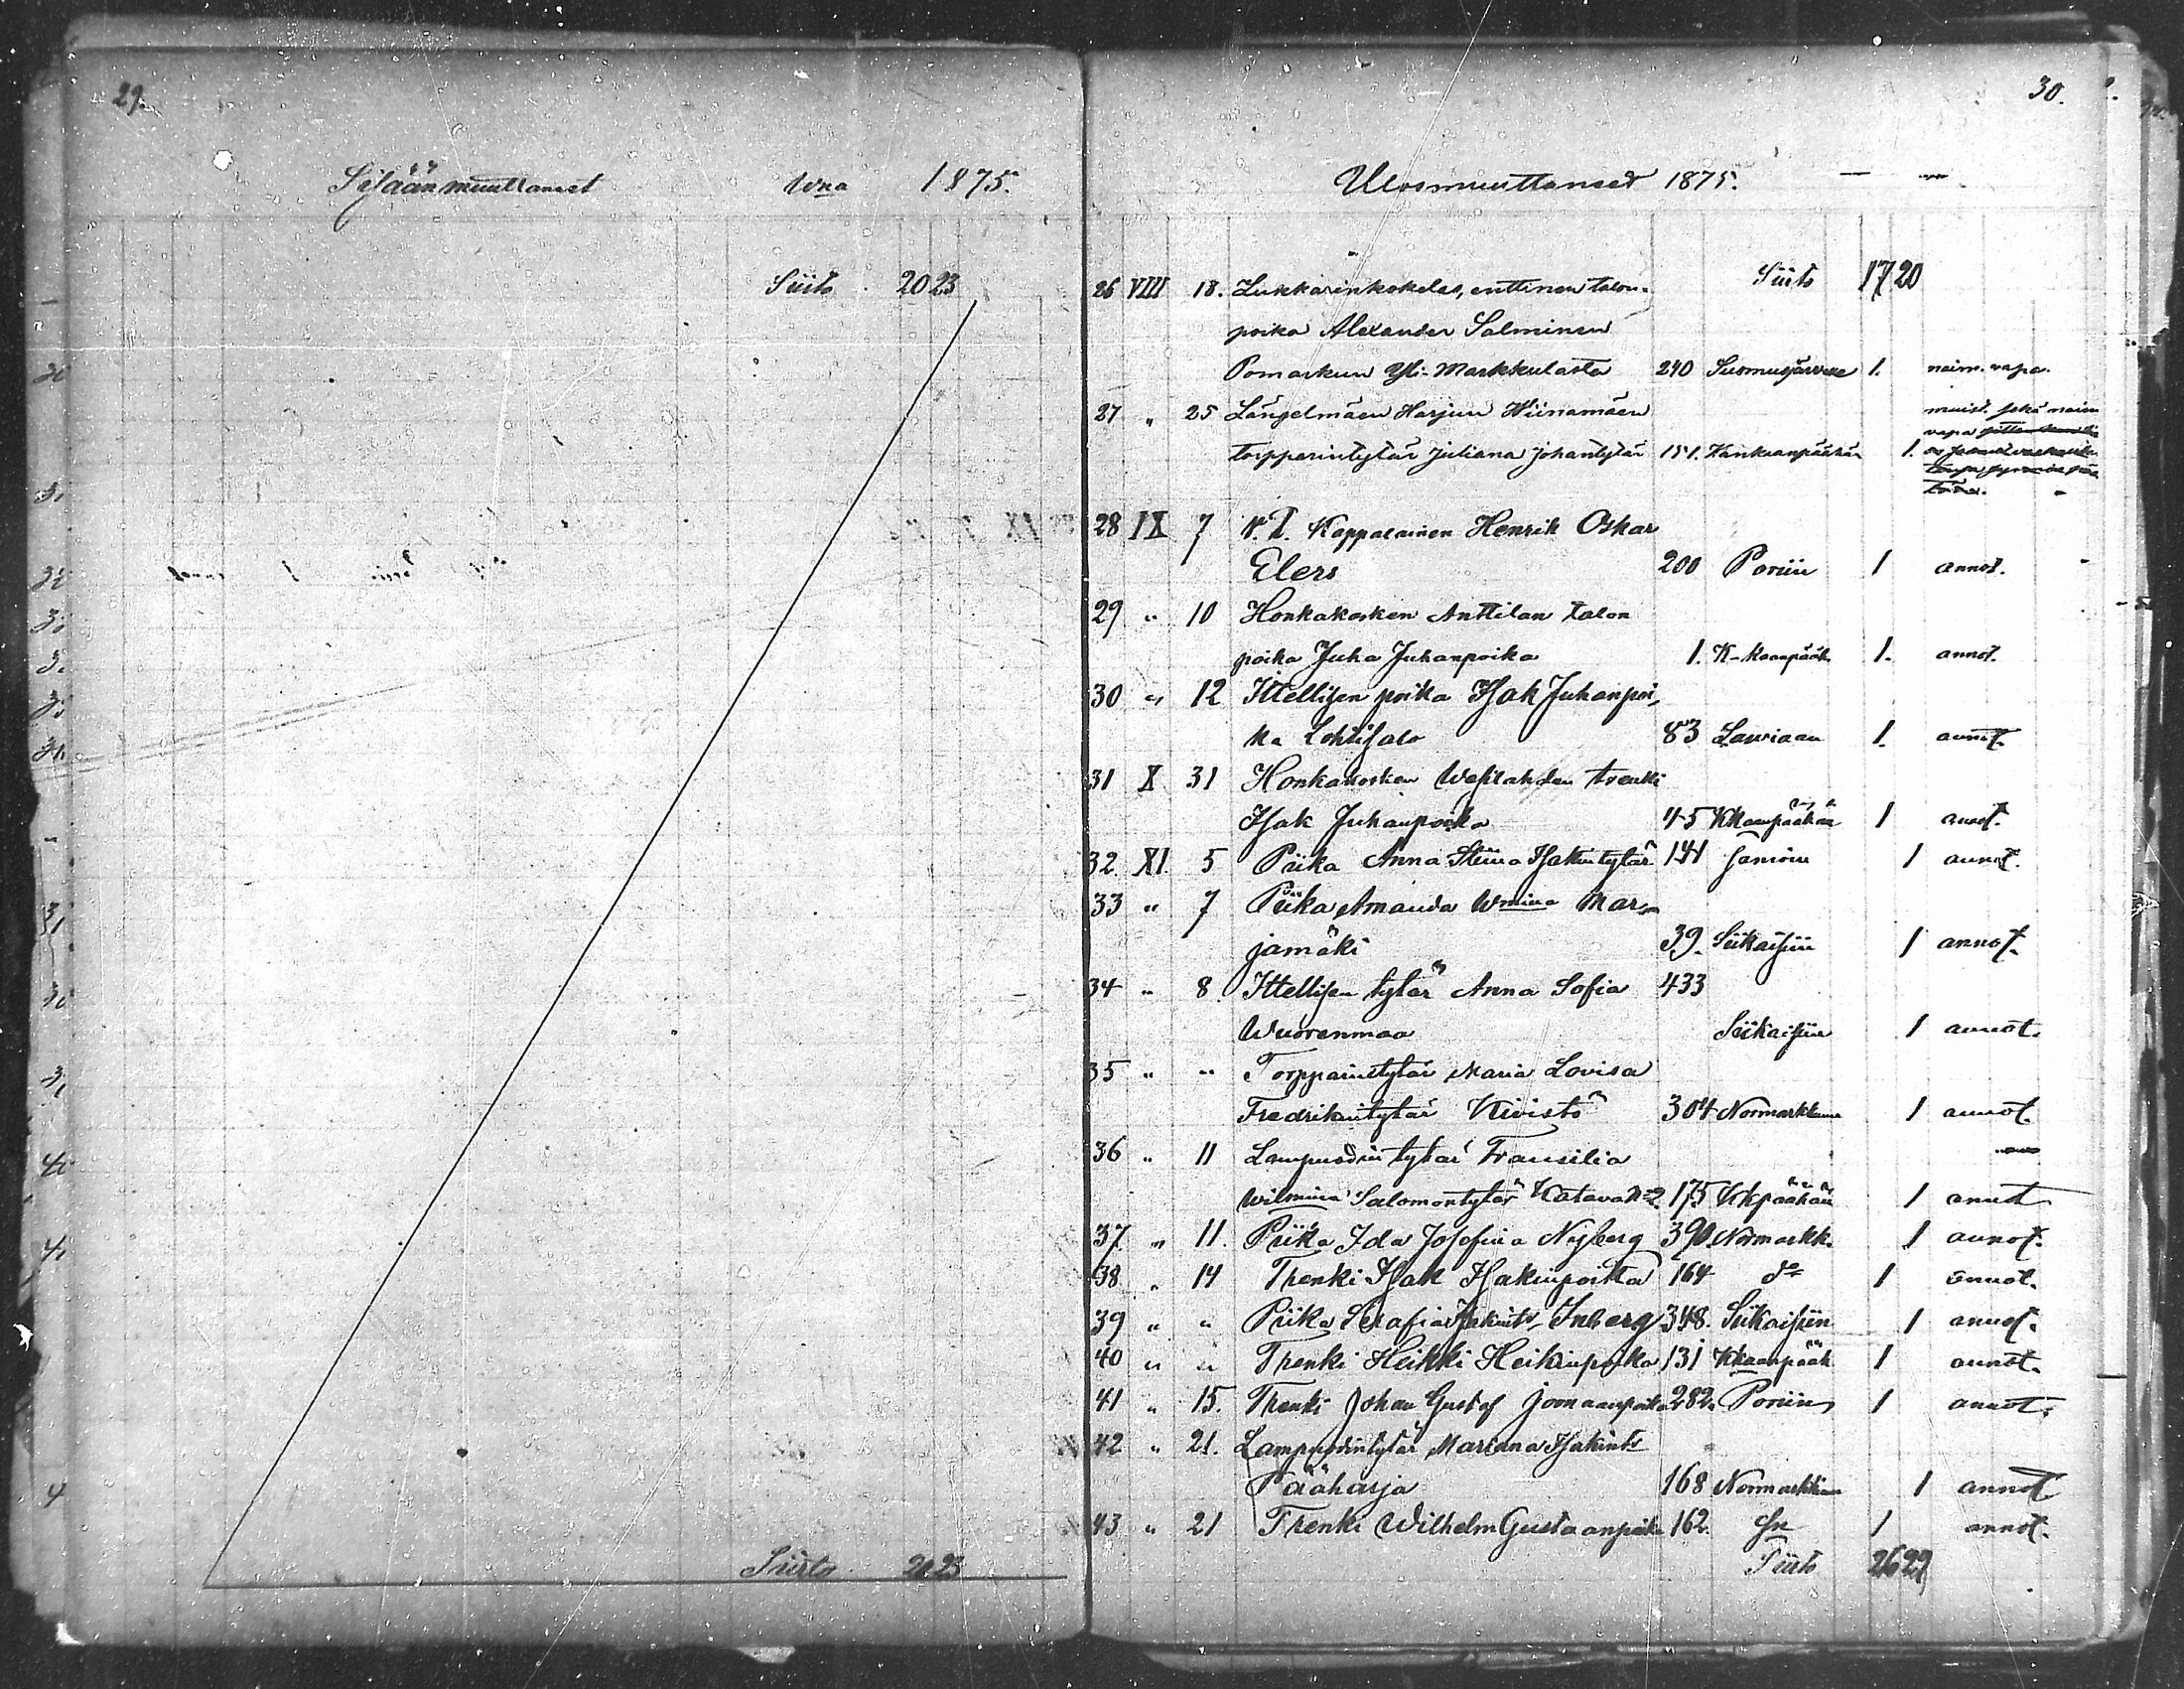 29.
Sisään muuttaneet Wna 1875.
Siirto 20 23
Siirto 20 23
30.
Ulosmuuttaneet 1875.
Siirto 17 20
26 VIII 18. Lukkarinkokelas, enttinen talon-
poika Alexander Salminen
Pomarkun Yli-Markkulasta 240 Suomusjärvelle 1. naim. vapa.
27 " 25 Längelmäen Harjun Wiinamäen
muist. sekä naim
vapa
torpparintytär Juliana Johantytär 151. Kankaanpäähän 1.
28 IX 7 V. T. Kappalainen Henrik Oskar
Elers 200 Poriin 1 annot.
29 " 10 Honkakosken Anttilan talon
poika Juha Juhanpoika 1. K-kaanpääh. 1. annot.
30 " 12 Ittellisen poika Isak Juhanpoi,
ka Lehtisalo 83 Laviaan 1. annot.
31 X 31 Honkakosken Wesilahden trenki
Isak Juhanpoika 45 Kkaanpäähän 1 annot.
32. XI. 5 Piika Anna Stiina Isakintytär 141 1 annot.
33 " 7 Piika Amanda Wmiina Mar-
jamäki 39. Siikaisiin 1 annot.
34 " 8 Ittellisen tytär Anna Sofia 433
Wuorenmaa Siikaisiin 1 annot.
35 " " Torpparintytär Maria Lovisa
Fredrikintytär Kivistö 304 Normarkkuun 1 annot.
36 " 11 Lampuodin tytär Fransilia
Wilmiina Salomontytär Katava 175 Kkpäähän 1 annot
37. " 11. Piika Ida Josofina Nyberg 390. Normarkk. 1 annot.
38 " 14 Trenki Isak Isakinpoika 164 do 1 annot.
39 " " Piika Serafia Isakints Inberg 348. Siikaisiin 1 annot.
40 " " Trenki Heikki Heikinpoika 131 Kkaanpääh 1 annot.
41 " 15. Trenki Johan Gustaf Joonaanpoika 282. Poriin 1 annot.
42 " 21. Lampuodintytär Mariana Isakints
Pääharja 168 Normarkkuun 1 annot
43 " 21 Trenki Wilhelm Gustaanpoika 162. 1 annot.
Siirto 26 29